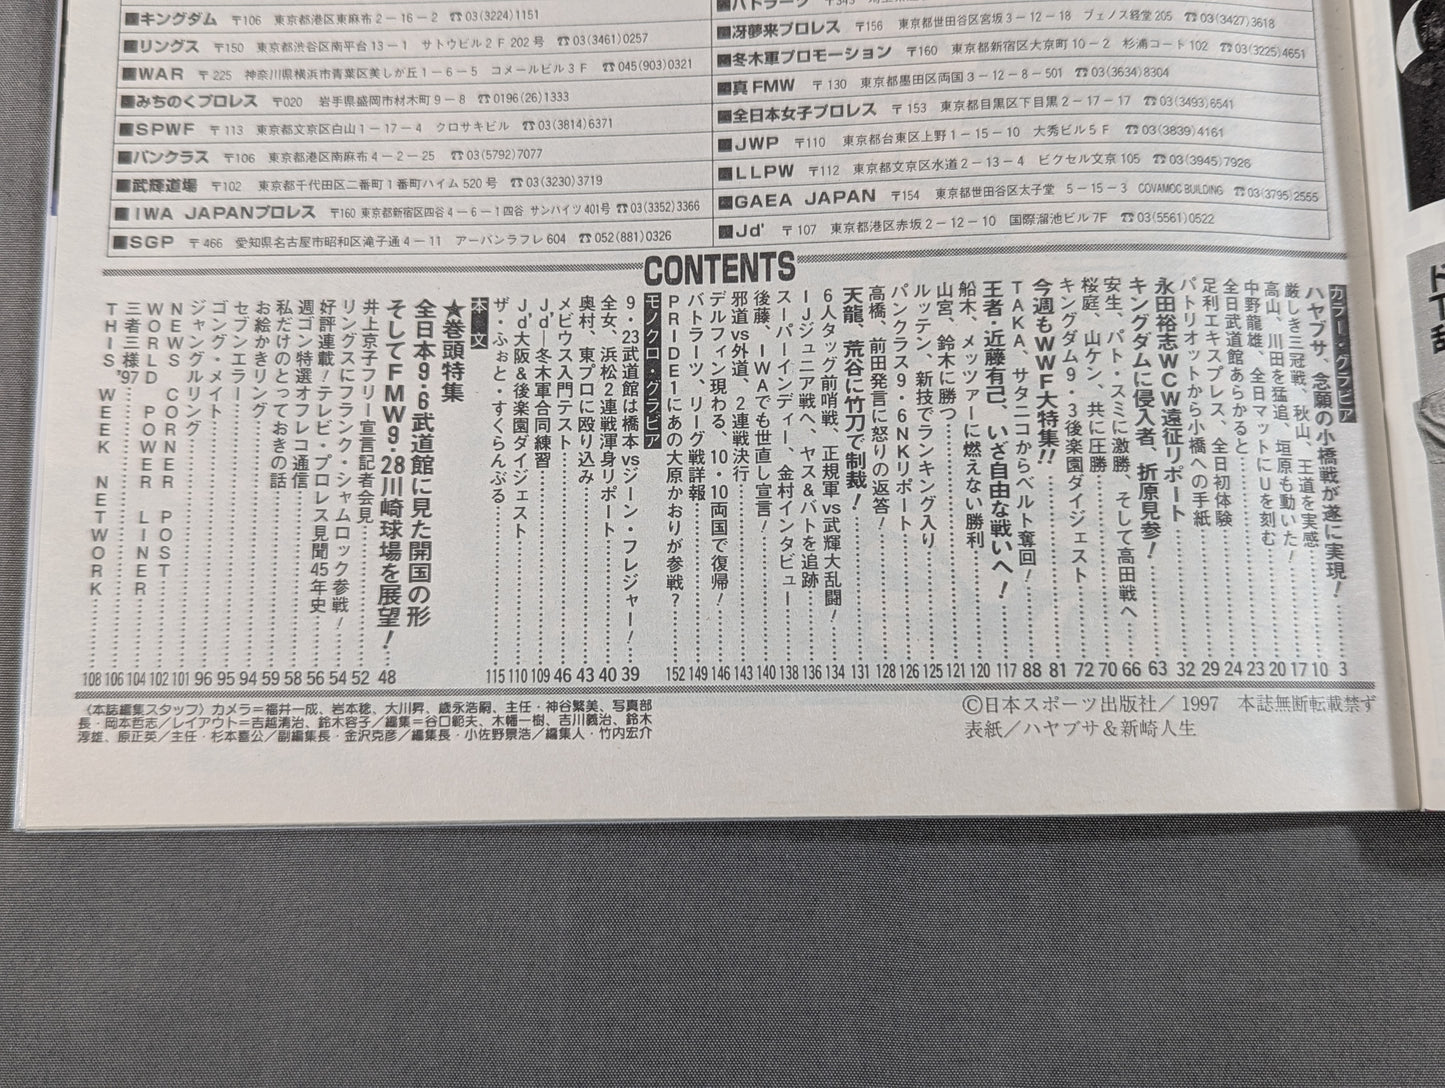 ■キングダム 〒106 東京都港区東麻布2-16-2 ☎03(3224)1151
■リングス 〒150 東京都渋谷区南平台13-1 サトウビル2F 202号 ☎03(3461)0257
■WAR 〒225 神奈川県横浜市青葉区美しが丘1-6-5 コメールビル3F ☎045(903)0321
■みちのくプロレス 〒020 岩手県盛岡市材木町9-8 ☎0196(26)1333
■SPWF 〒113 東京都文京区白山1-17-4 クロサキビル ☎03(3814)6371
■パンクラス 〒106 東京都港区南麻布4-2-25 ☎03(5792)7077
■武輝道場 〒102 東京都千代田区二番町1番町ハイム520号 ☎03(3230)3719
■IWA JAPANプロレス 〒160 東京都新宿区四谷4-6-1四谷 サンハイツ401号 ☎03(3352)3366
■SGP 〒466 愛知県名古屋市昭和区滝子通4-11 アーバンラフレ604 ☎052(881)0326
■冴夢来プロレス 〒156 東京都世田谷区宮坂3-12-18 ブェノス経堂205 ☎03(3427)3618
■冬木軍プロモーション 〒160 東京都新宿区大京町10-2 杉浦コート102 ☎03(3225)4651
■真FMW 〒130 東京都墨田区両国3-12-8-501 ☎03(3634)8304
■全日本女子プロレス 〒153 東京都目黒区下目黒2-17-17 ☎03(3493)6541
■JWP 〒110 東京都台東区上野1-15-10 大秀ビル5F ☎03(3839)4161
■LLPW 〒112 東京都文京区水道2-13-4 ビクセル文京105 ☎03(3945)7926
■GAEA JAPAN 〒154 東京都世田谷区太子堂 5-15-3 COVAMOC BUILDING ☎03(3795)2555
■Jd' 〒107 東京都港区赤坂2-12-10 国際溜池ビル7F ☎03(5561)0522
CONTENTS
カラー・グラビア
ハヤブサ、念願の小橋戦が遂に実現!……3
厳しき三冠戦、秋山、王道を実感……10
高山、川田を猛追、垣原も動いた!……17
中野龍雄、全日マットにUを刻む……20
全日武道館あらかると……23
足利エキスプレス、全日初体験……24
パトリオットから小橋への手紙……29
永田裕志WCW遠征リポート……32
キングダムに侵入者、折原見参!……63
安生、パト・スミに激勝、そして高田戦へ……66
桜庭、山ケン、共に圧勝……70
キングダム9・3後楽園ダイジェスト……72
今週もWWF大特集!!……81
TAKA、サタニコからベルト奪回!……88
王者・近藤有己、いざ自由な戦いへ!……117
船木、メッツァーに燃えない勝利……120
山宮、鈴木に勝つ……121
ルッテン、新技でランキング入り……125
パンクラス9・6NKリポート……126
高橋、前田発言に怒りの返答!……128
天龍、荒谷に竹刀で制裁!……131
6人タッグ前哨戦、正規軍vs武輝大乱闘!……134
IJジュニア戦へ、ヤス&バトを追跡……136
スーパーインディー、金村インタビュー……138
後藤、IWAでも世直し宣言!……140
邪道vs外道、2連戦決行……143
デルフィン現わる、10・10両国で復帰!……146
バトラーツ、リーグ戦詳報……149
PRIDE1にあの大原かおりが参戦?……152
モノクロ・グラビア
9・23武道館は橋本vsジーン・フレジャー!……39
全女、浜松2連戦渾身リポート……40
奥村、東プロに殴り込み……43
メビウス入門テスト……46
Jd'―冬木軍合同練習……109
Jd'大阪&後楽園ダイジェスト……110
ザ・ふぉと・すくらんぶる……115
本文
★巻頭特集
全日本9・6武道館に見た開国の形
そしてFMW9・28川崎球場を展望!……48
井上京子フリー宣言記者会見……52
リングスにフランク・シャムロック参戦!……54
好評連載/テレビ・プロレス見聞45年史……56
週ゴン特選オフレコ通信……58
私だけのとっておきの話……59
お絵かきリング……58
セブンエラー……94
ゴング・メイト……95
ジャングルリング……96
NEWS CORNER POST……101
WORLD POWER LINER……102
三者三様'97……104
THIS WEEK NETWORK……108
〈本誌編集スタッフ〉カメラ=福井一成、岩本稔、大川昇、歳永浩嗣、主任・神谷繁美、写真部
長・岡本哲志/レイアウト=吉越満治、鈴木容子/編集=谷口範夫、木幡一樹、吉川義治、鈴木
淳雄、原正英/主任・杉本喜公/副編集長・金沢克彦/編集長・小佐野景浩/編集人・竹内宏介
©日本スポーツ出版社/1997 本誌無断転載禁ず
表紙/ハヤブサ&新崎人生